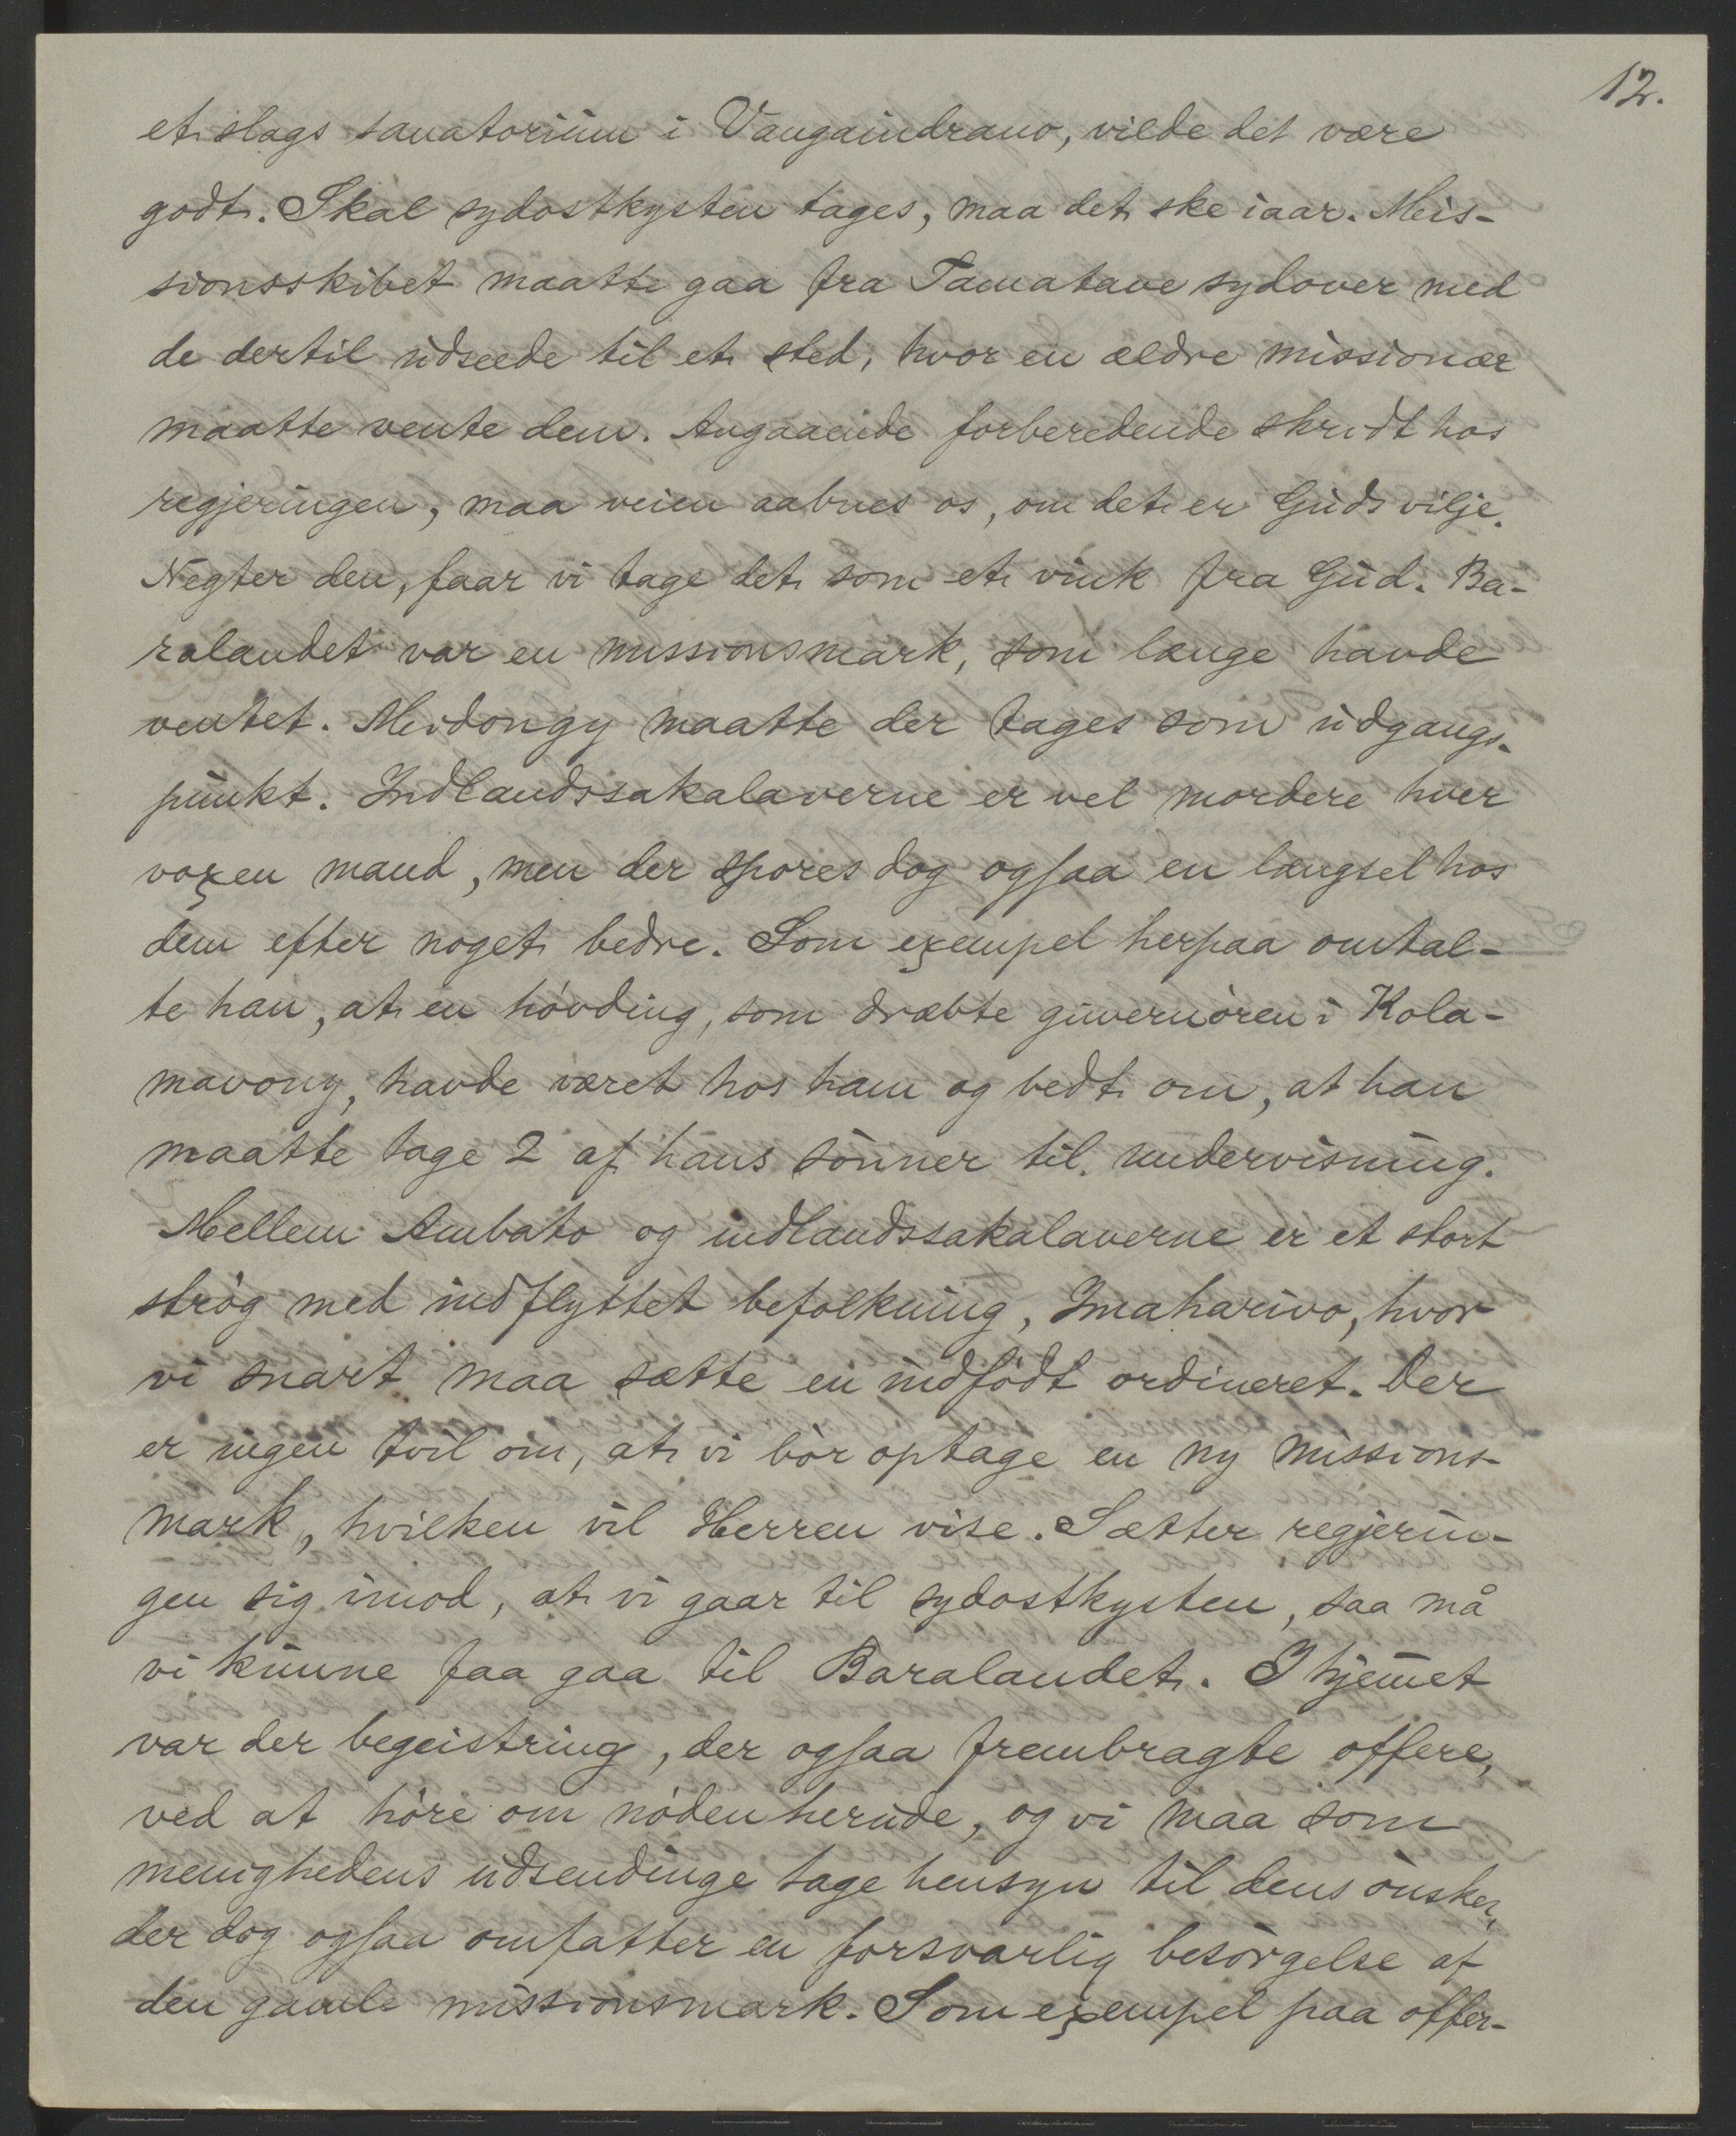 12.
et slags sanatorium i Vangaindrano, vilde det være
godt. Skal sydostkysten tages, maa det ske iaar. Mis-
sionsskibet maatte gaa fra Tamatave sydover med
de dertil udseede til et sted, hvor en ældre missionær
maatte vente dem. Angaaende forberedende skridt hos
regjeringen, maa veien aabnes os, om det er Guds vilje.
Negter den, faar vi tage det som et vink fra Gud. Ba-
ralandet var en missionsmark, som længe havde
ventet. Midongy maatte der tages som udgangs-
punkt. Indlandssakalaverne er vel mordere hver
voxen mand, men der spores dog ogsaa en længsel hos
dem efter noget bedre. Som exempel herpaa omtal-
te han, at en høvding, som dræbte guvernøren i Kola-
mavony, havde været hos ham og bedt om, at han
maatte tage 2 af hans sønner til undervisning.
Mellem Ambato og indlandssakalaverne er et stort
strøg med indflyttet befolkning, Imaharivo, hvor
vi snart maa sætte en indfødt ordineret. Der
er ingen tvil om, at vi bør optage en ny missions-
mark, hvilken vil Herren vise. Sætter regjerin-
gen sig imod, at vi gaar til sydostkysten, saa må
vi kunne faa gaa til Baralandet. I hjemmet
var der begeistring, der ogsaa frembragte offere,
ved at høre om nøden herude, og vi maa som
menighedens udsendinge tage hensyn til dens ønsker,
der dog ogsaa omfatter en forsvarlig besørgelse af
den gamle missionsmark. Som exempel paa offer-